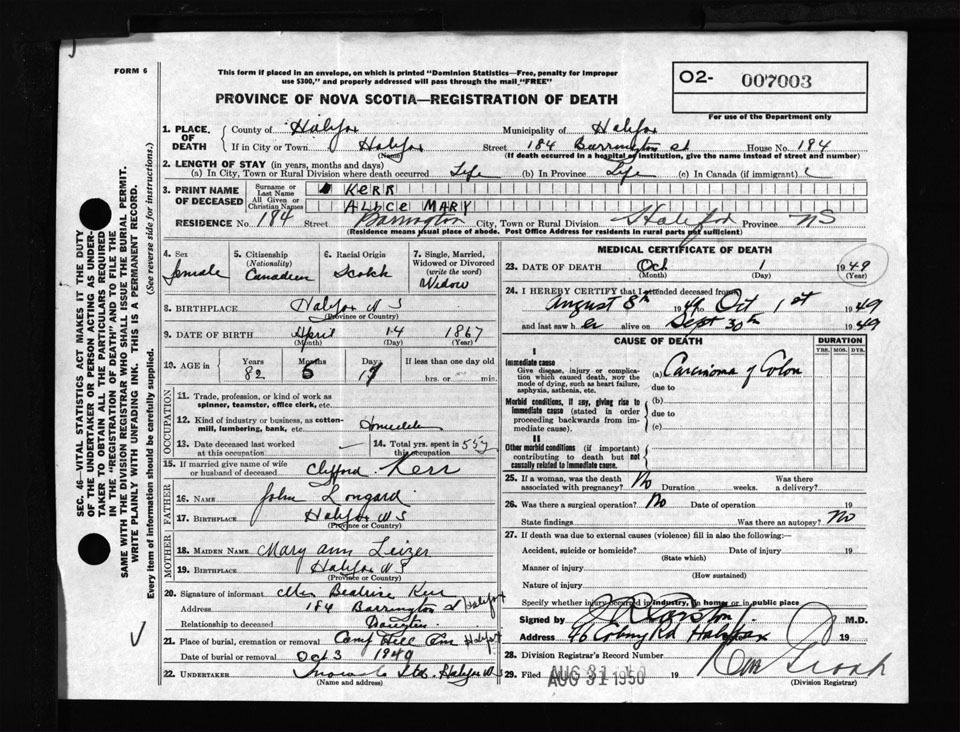 FORM 6
This form if placed in an envelope, on which is printed "Dominion Statistics—Free, penalty for improper
use $300," and properly addressed will pass through the mail "FREE"
O2- 007003
For use of the Department only
PROVINCE OF NOVA SCOTIA—REGISTRATION OF DEATH
1. PLACE OF DEATH County of Halifax Municipality of Halifax
If in City or Town Halifax Street 184 Barrington St House No. 184
(Name) (If death occurred in a hospital or institution, give the name instead of street and number)
2. LENGTH OF STAY (in years, months and days)
(a) In City, Town or Rural Division where death occurred Life (b) In Province Life (c) In Canada (if immigrant)
3. PRINT NAME OF DECEASED Surname or Last Name KERR
All Given or Christian Names ALICE MARY
RESIDENCE No. 184 Street Barrington City, Town or Rural Division Halifax Province NS
(Residence means usual place of abode. Post Office Address for residents in rural parts not sufficient)
4. Sex female
5. Citizenship (Nationality) Canadian
6. Racial Origin Scotch
7. Single, Married, Widowed or Divorced (write the word) Widow
8. BIRTHPLACE Halifax N S
(Province or Country)
9. DATE OF BIRTH April 14 1867
(Month) (Day) (Year)
10. AGE in Years Months Days If less than one day old
82 5 17 hrs. or min.
OCCUPATION
11. Trade, profession or kind of work as
spinner, teamster, office clerk, etc.
12. Kind of industry or business, as cotton-
mill, lumbering, bank, etc.
13. Date deceased last worked
at this occupation
14. Total yrs. spent in
this occupation
15. If married give name of wife
or husband of deceased Clifford Kerr
FATHER
16. NAME John Longard
17. BIRTHPLACE Halifax N S
(Province or Country)
MOTHER
18. MAIDEN NAME Mary Ann Leizer
19. BIRTHPLACE Halifax N S
(Province or Country)
20. Signature of informant Mrs Beatrice Kerr
Address 184 Barrington St Halifax
Relationship to deceased Daughter
21. Place of burial, cremation or removal Camp Hill Cem Halifax
Date of burial or removal Oct 3 1949
22. UNDERTAKER Snow & Co Ltd. Halifax N S
(Name and address)
MEDICAL CERTIFICATE OF DEATH
23. DATE OF DEATH Oct 1 1949
(Month) (Day) (Year)
24. I HEREBY CERTIFY that I attended deceased from
August 8th 1949 to Oct 1st 1949
and last saw her alive on Sept 30th 1949
CAUSE OF DEATH DURATION
YRS. MOS. DYS.
I
Immediate cause
Give disease, injury or complica-
tion which caused death, NOT the
mode of dying, such as heart failure,
asphyxia, asthenia, etc.
(a) Carcinoma of Colon
due to
Morbid conditions, if any, giving rise to
immediate cause (stated in order
proceeding backwards from im-
mediate cause).
(b)
due to
(c)
II
Other morbid conditions (if important)
contributing to death but not
causally related to immediate cause.
25. If a woman, was the death
associated with pregnancy? No Duration weeks. Was there
a delivery?
26. Was there a surgical operation? No Date of operation 19
State findings Was there an autopsy? No
27. If death was due to external causes (violence) fill in also the following:—
Accident, suicide or homicide? Date of injury 19
(State which)
Manner of injury
(How sustained)
Nature of injury
Specify whether injury occurred in industry, in home or in public place
Signed by M.D.
Address 96 Coburg Rd Halifax 19
28. Division Registrar's Record Number
29. Filed AUG 31 1950 19
(Division Registrar)
SEC. 46—VITAL STATISTICS ACT MAKES IT THE DUTY
OF THE UNDERTAKER OR PERSON ACTING AS UNDER-
TAKER TO OBTAIN ALL THE PARTICULARS REQUIRED
IN THE "REGISTRATION OF DEATH" AND TO FILE THE
SAME WITH THE DIVISION REGISTRAR WHO SHALL ISSUE THE BURIAL PERMIT.
WRITE PLAINLY WITH UNFADING INK. THIS IS A PERMANENT RECORD.
Every item of information should be carefully supplied. (See reverse side for instructions.)